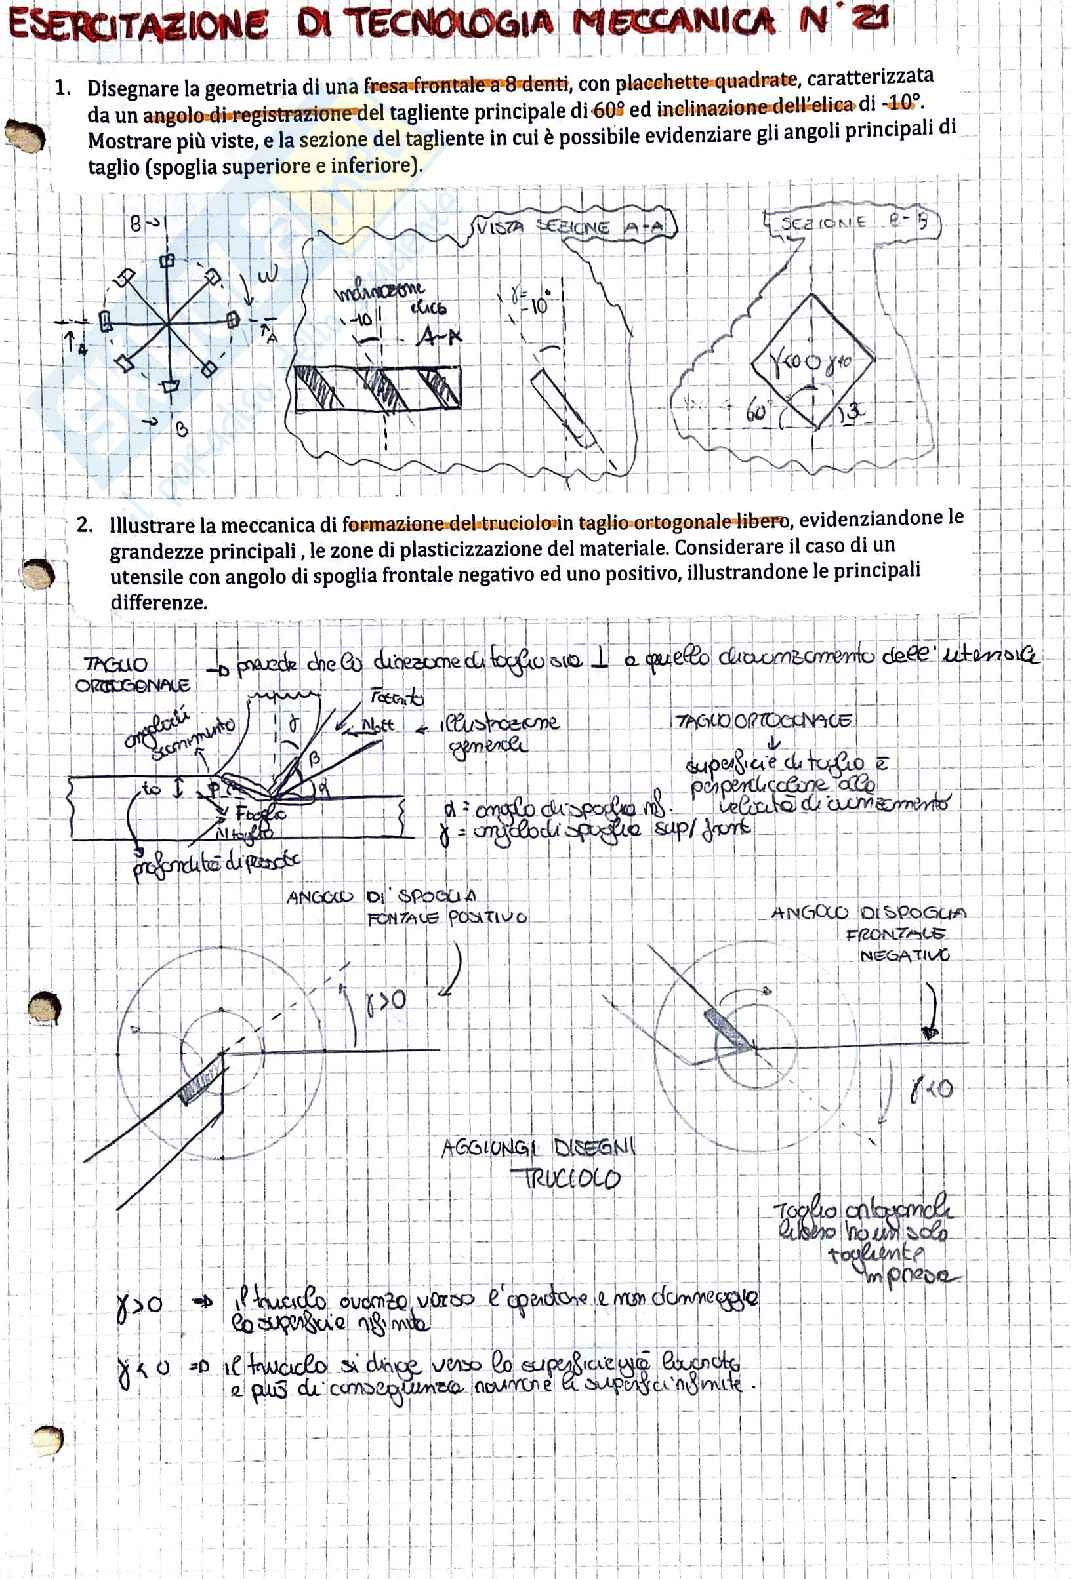 ESERCITAZIONE DI TECNOLOGIA MECCANICA N°21
1. Disegnare la geometria di una fresa frontale a 8 denti, con placchette quadrate, caratterizzata
da un angolo di registrazione del tagliente principale di 60° ed inclinazione dell'elica di -10°.
Mostrare più viste, e la sezione del tagliente in cui è possibile evidenziare gli angoli principali di
taglio (spoglia superiore e inferiore).
B
VISTA SEZIONE A-A
SEZIONE B-B
ω
inclinazione
elica
-10
A-A
γ=
-10°
A
A
γ<0
γ<0
60
B
2. Illustrare la meccanica di formazione del truciolo in taglio ortogonale libero, evidenziandone le
grandezze principali , le zone di plasticizzazione del materiale. Considerare il caso di un
utensile con angolo di spoglia frontale negativo ed uno positivo, illustrandone le principali
differenze.
TAGLIO
ORTOGONALE
→ prevede che la direzione di taglio sia ⊥ a quello di avanzamento dell'utensile
angolo di
scorrimento
γ
Fattrito
Natt
← illustrazione
generale
β
α
to
φ
Ftaglio
Ntaglio
profondità di passata
α = angolo di spoglia inf.
γ = angolo di spoglia sup/front
TAGLIO ORTOGONALE
↓
superficie di taglio è
perpendicolare alla
velocità di avanzamento
ANGOLO DI SPOGLIA
FONTALE POSITIVO
γ>0
ANGOLO DI SPOGLIA
FRONTALE
NEGATIVO
γ<0
AGGIUNGI DISEGNI
TRUCIOLO
Taglio ortogonale
libero ha un solo
tagliente
in presa
γ>0 ⇒ il truciolo avanza verso l'operatore e non danneggia
la superficie rifinita
γ<0 ⇒ il truciolo si dirige verso la superficie già lavorata
e può di conseguenza rovinare la superfici rifinite.